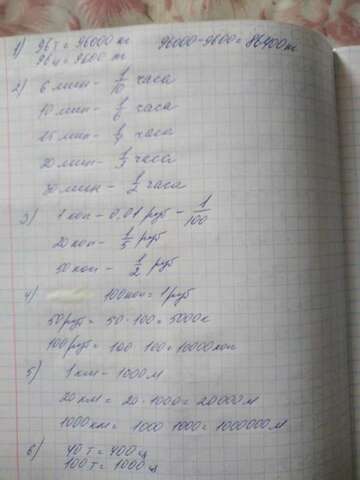 1) 96т = 96000 кг 96000-9600=86400кг
96ц = 9600 кг
2) 6 мин - 1/10 часа
10 мин - 1/6 часа
15 мин - 1/4 часа
20 мин - 1/3 часа
30 мин - 1/2 часа
3) 1 коп - 0,01 руб - 1/100
20 коп - 1/5 руб
50 коп - 1/2 руб
4) 100коп = 1руб
50руб = 50·100=5000к
100руб = 100·100=10000коп
5) 1 км - 1000м
20 км = 20·1000=20000м
1000км = 1000·1000=1000000м
6) 40т=400ц
100т=1000ц